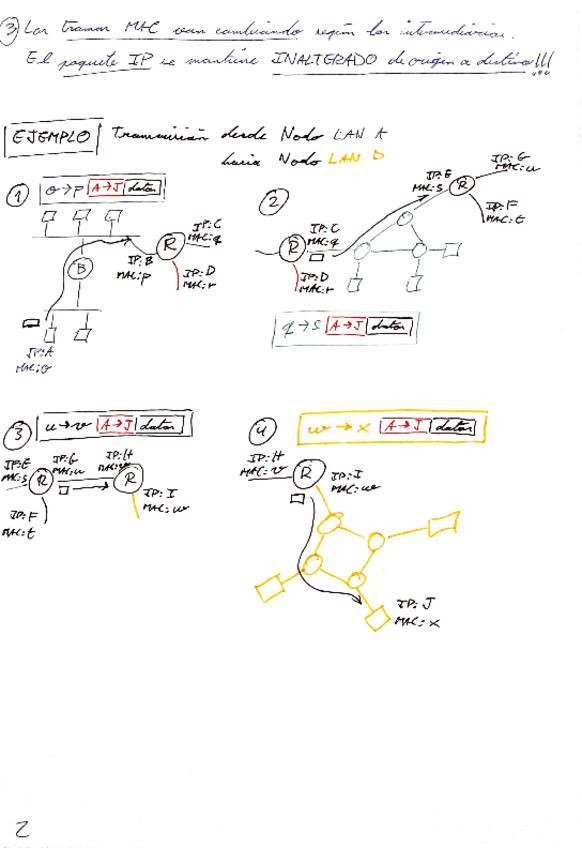 3) Las tramas MAC van cambiando según los intermediarios.
El paquete IP se mantiene INALTERADO de origen a destino!!!
EJEMPLO Transmisión desde Nodo LAN A
hacia Nodo LAN D
1
o→p A→J datos
B
IP: B
MAC: p
R
IP: C
MAC: q
IP: D
MAC: r
IP: A
MAC: o
2
R
IP: C
MAC: q
IP: D
MAC: r
IP: E
MAC: s
R
IP: G
MAC: u
IP: F
MAC: t
q→s A→J datos
3
u→v A→J datos
IP: E
MAC: s
R
IP: G
MAC: u
IP: H
MAC: v
R
IP: F
MAC: t
IP: I
MAC: w
4
w→x A→J datos
IP: H
MAC: v
R
IP: I
MAC: w
IP: J
MAC: x
2